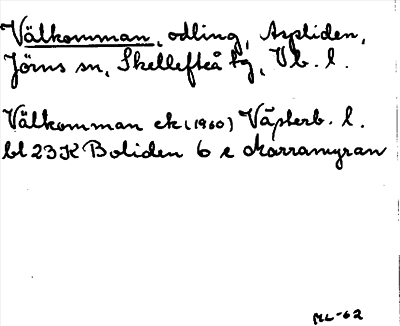 Välkomman, odling, Aspliden,
Jörns sn, Skellefteå tg, Vb. l.
Välkomman ek (1960) Västerb. l.
bl 23K Boliden 6 e Morramyran
ML-62